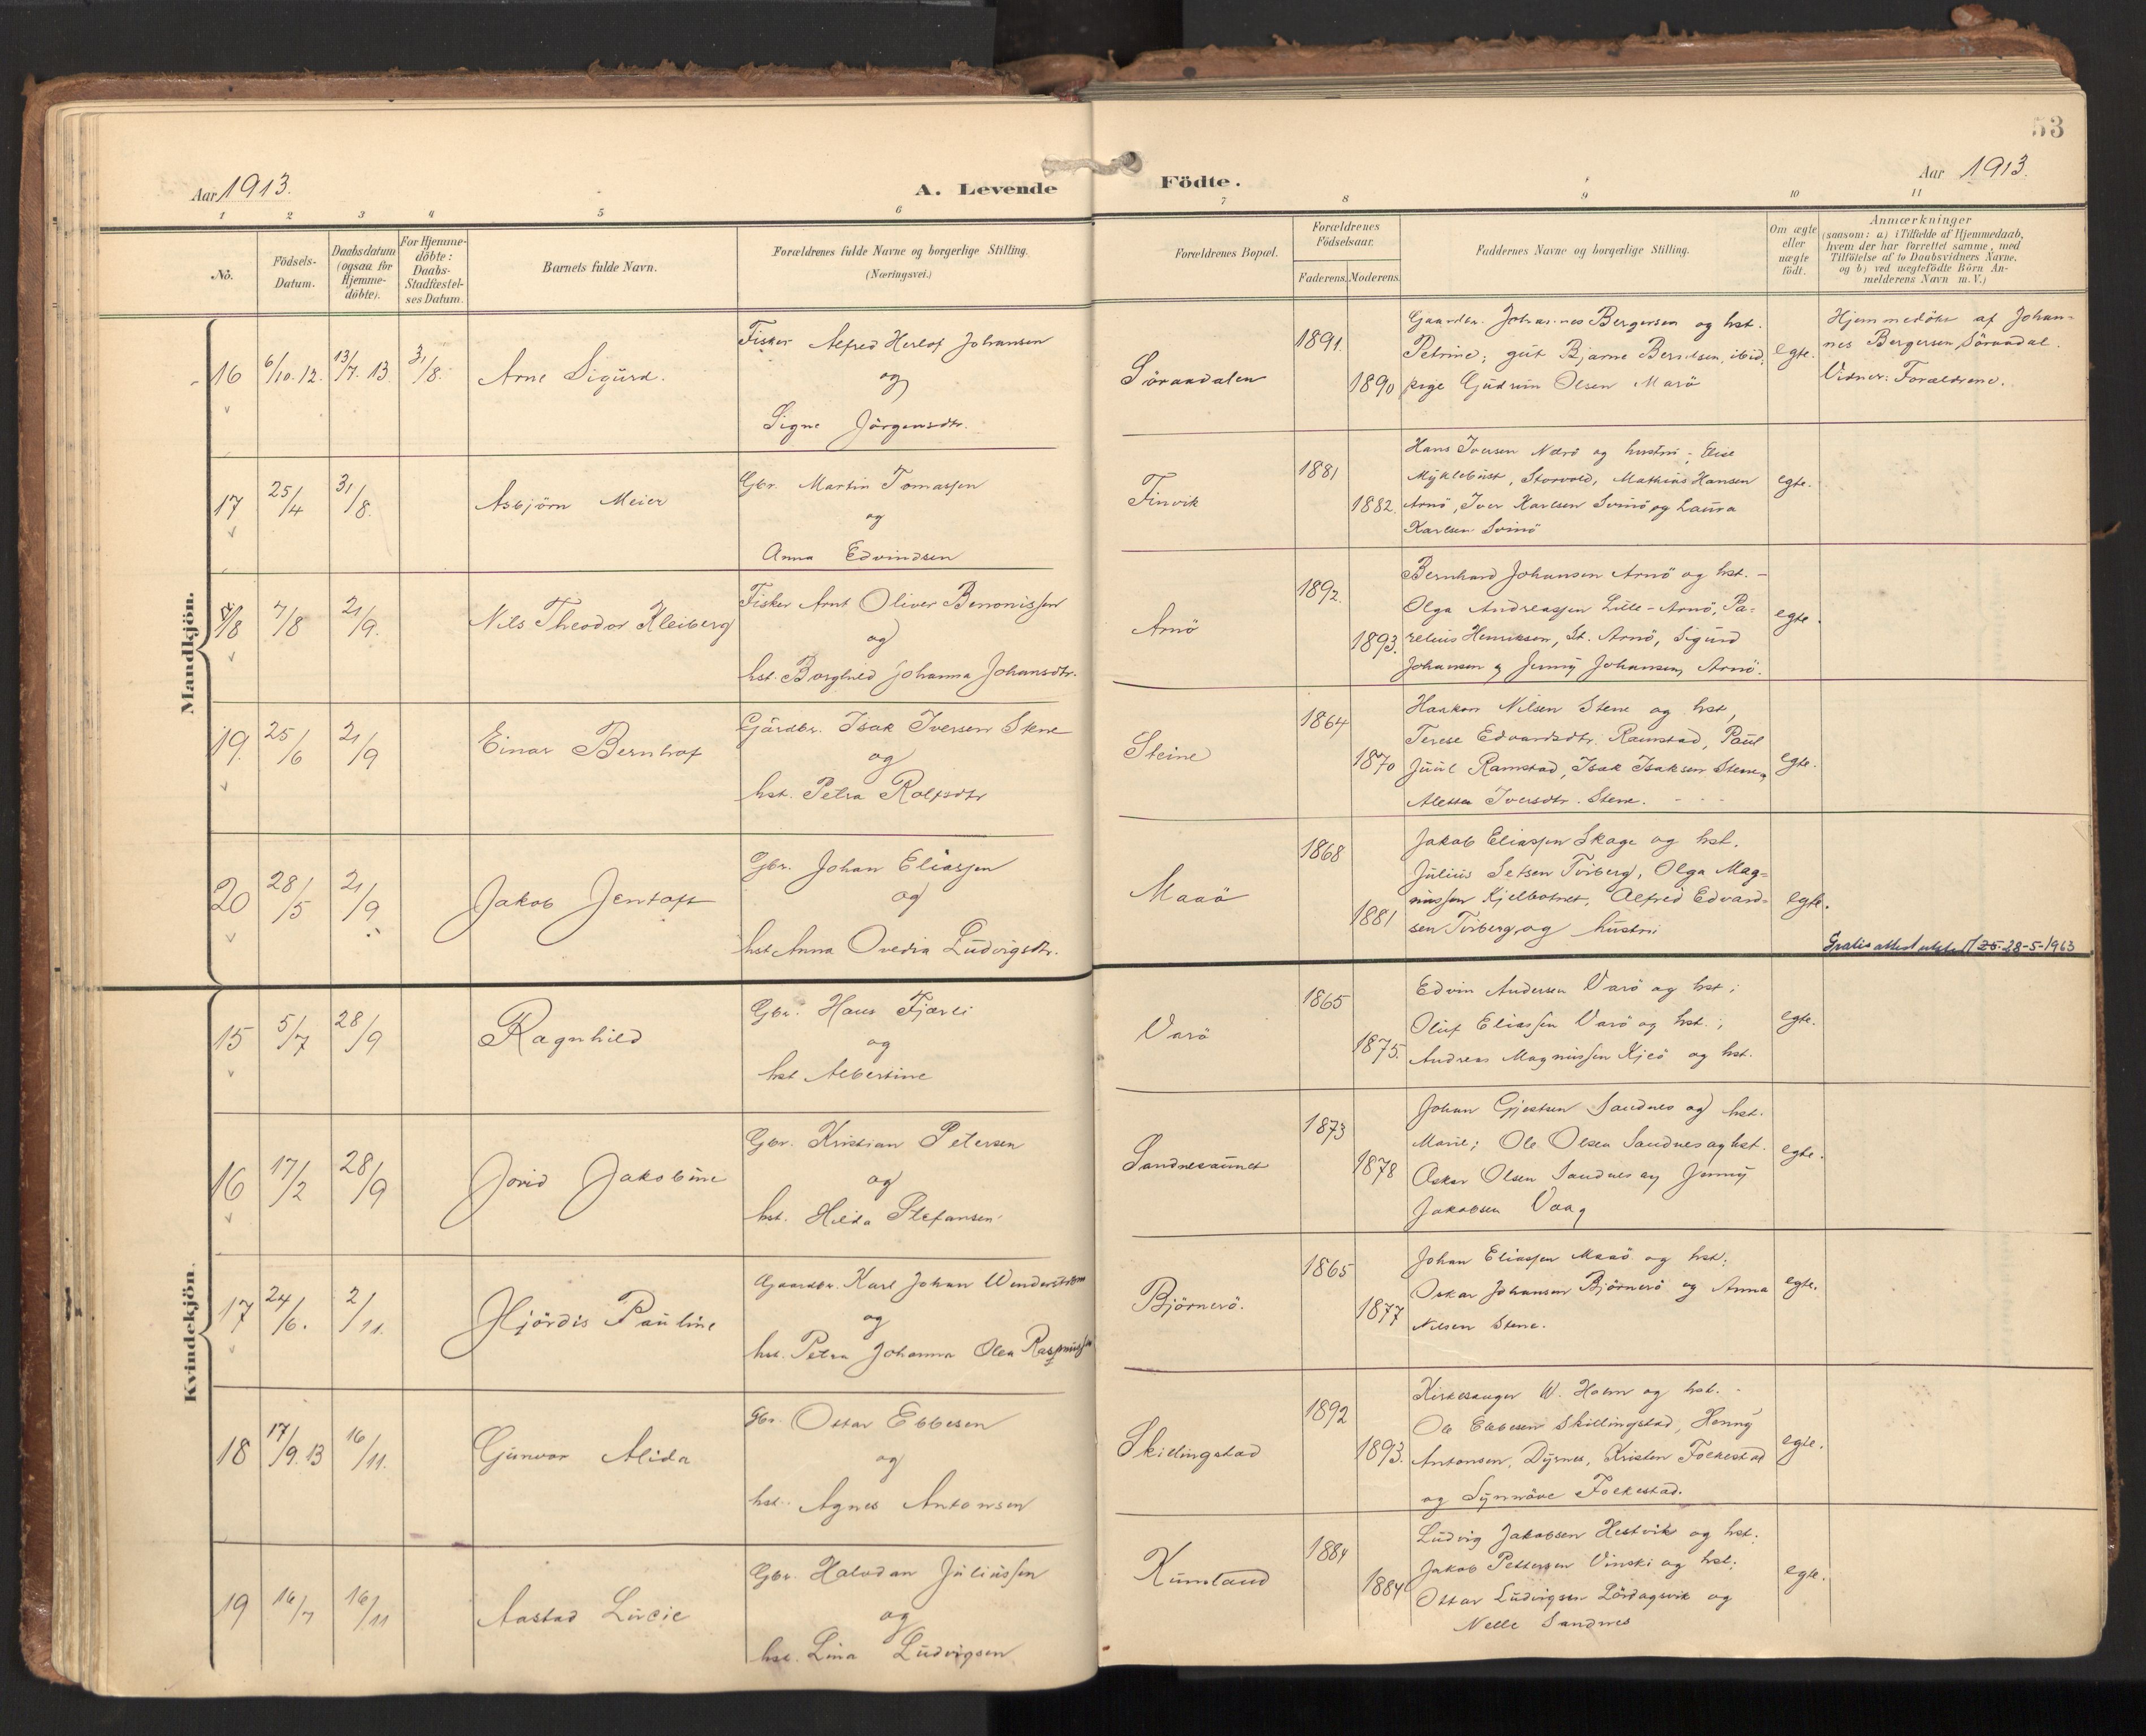 53
Aar 1913.
A. Levende
Födte.
Aar 1913.
1 2 3 4 5 6 7 8 9 10 11
No.
Födsels-
Datum.
Daabsdatum
(ogsaa for
Hjemme-
döbte).
For Hjemme-
döbte:
Daabs-
Stadfæstel-
ses Datum.
Barnets fulde Navn.
Forældrenes fulde Navne og borgerlige Stilling.
(Næringsvei.)
Forældrenes Bopæl.
Forældrenes
Födselsaar.
Faderens. Moderens.
Faddernes Navne og borgerlige Stilling.
Om ægte
eller
uægte
födt.
Anmærkninger
(saasom: a) i Tilfælde af Hjemmedaab,
hvem der har forrettet samme, med
Tilföielse af to Daabsvidners Navne,
og b) ved uægtefödte Börn An-
melderens Navn m.V.)
Mandkjön.
16 6/10. 12. 13/7. 13 31/8. Arne Sigurd.
Fisker Alfred Herlof Johansen
og
Signe Jörgensdtr.
Söraadalen
1891.
1890
Gaardbr. Johannes Bergersen og hst.
Petrine; gut Bjarne Berntsen, ibid,
pige Gudrun Olsen Marö
egte.
Hjemmedöbt af Johan-
nes Bergersen, Söraadal.
Vidner: Forældrene.
17 25/4 31/8. Asbjörn Meier
Gbr. Martin Tomassen
og
Anna Edvindsen
Finvik
1881
1882.
Hans Iversen Nærö og hustru; Elise
Myklebust, Storvold, Mathias Hansen
Arnö, Iver Karlsen Svinö og Laura
Karlsen Svinö
egte.
18 7/8 21/9. Nils Theodor Kleiberg
Fisker Arnt Oliver Benonissen
og
hst. Borghild Johanna Johansdtr.
Arnö
1892.
1893.
Bernhard Johansen Arnö og hst. –
Olga Andreassen Lille-Arnö, Pa-
relius Henriksen, St. Arnö, Sigurd
Johansen og Jenny Johansen, Arnö.
egte.
19. 25/6 21/9 Einar Bernhof
Gårdbr. Isak Iversen Stene
og
hst. Petra Rolfsdtr
Steine
1864
1870
Haakon Nilsen Stene og hst,
Terese Edvardsdtr. Ramstad, Paul
Juul Ramstad, Isak Isaksen Stene,
Aletta Iversdtr. Stene.
egte.
20 28/5 21/9 Jakob Jentoft
Gbr. Johan Eliassen
og
hst Anna Ovedia Ludvigsdtr.
Maaö
1868
1881
Jakob Eliassen Skage og hst.
Julius Setsen Tviberg, Olga Mag-
nussen Kjelbotnet, Alfred Edvard-
sen Tviberg og hustru
egte.
Gratis attest utstedt 28-5-1963
Kvindekjön.
15 5/7 28/9 Ragnhild
Gbr. Hans Fjærli
og
hst Albertine
Varö
1865
1875.
Edvin Andersen Varö og hst;
Oluf Eliassen Varö og hst.;
Andreas Magnussen Kjeö og hst.
egte.
16 17/2 28/9 Jorid Jakobine
Gbr. Kristian Petersen
og
hst. Hilda Stefansen
Sandnesaunet
1873
1878
Johan Gjertsen Sandnes og hst.
Marie; Ole Olsen Sandnes og hst.
Oskar Olsen Sandnes og Jenny
Jakobsen Vaag
egte.
17 24/6. 2/11. Hjördis Pauline
Gaardbr. Karl Johan Wenderström
og
hst. Petra Johanna Olea Rasmussen
Björnerö.
1865
1877
Johan Eliassen Maaö og hst;
Oskar Johansen Björnerö og Anna
Nilsen Stene.
egte.
18 17/9. 13 16/11. Gunvor Alida
Gbr. Ottar Ebbesen
og
hst. Agnes Antonsen
Skillingstad
1892
1893.
Kirkesanger W. Holm og hst.
Ole Ebbesen Skillingstad, Henny
Antonsen, Dyrnes, Kristen Folkestad
og Synnöve Folkestad.
egte.
19 16/7 16/11 Aastad Lucie
Gbr. Halvdan Juliussen
og
hst. Lina Ludvigsen
Kunstand
1884
1884
Ludvig Jakobsen Hestvik og hst;
Jakob Pettersen Vinski og hst;
Ottar Ludvigsen Lördagsvik og
Nelle Sandnes
egte.